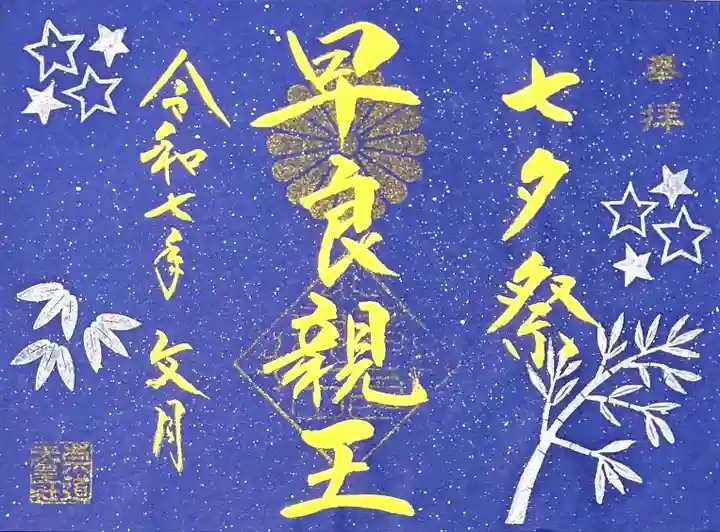 奉拝
七夕祭
早良親王
令和七年 文月